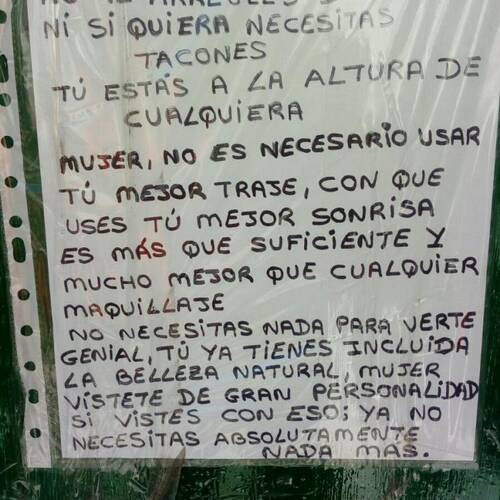 NI SI QUIERA NECESITAS
TACONES
TÚ ESTÁS A LA ALTURA DE
CUALQUIERA
MUJER, NO ES NECESARIO USAR
TÚ MEJOR TRAJE, CON QUE
USES TÚ MEJOR SONRISA
ES MÁS QUE SUFICIENTE Y
MUCHO MEJOR QUE CUALQUIER
MAQUILLAJE
NO NECESITAS NADA PARA VERTE
GENIAL, TÚ YA TIENES INCLUIDA
LA BELLEZA NATURAL, MUJER
VÍSTETE DE GRAN PERSONALIDAD
SI VISTES CON ESO; YA NO
NECESITAS ABSOLUTAMENTE
NADA MÁS.